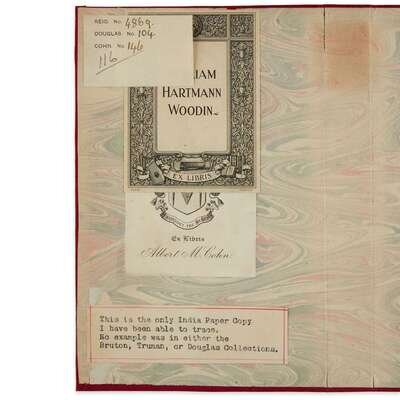 REID. No. 4869.
DOUGLAS. No. 104
COHN. No. 146
116
LIAM
HARTMANN
WOODIN
EX LIBRIS
Ex Libris
Albert M. Cohn
This is the only India Paper Copy
I have been able to trace.
No example was in either the
Bruton, Truman, or Douglas Collections.